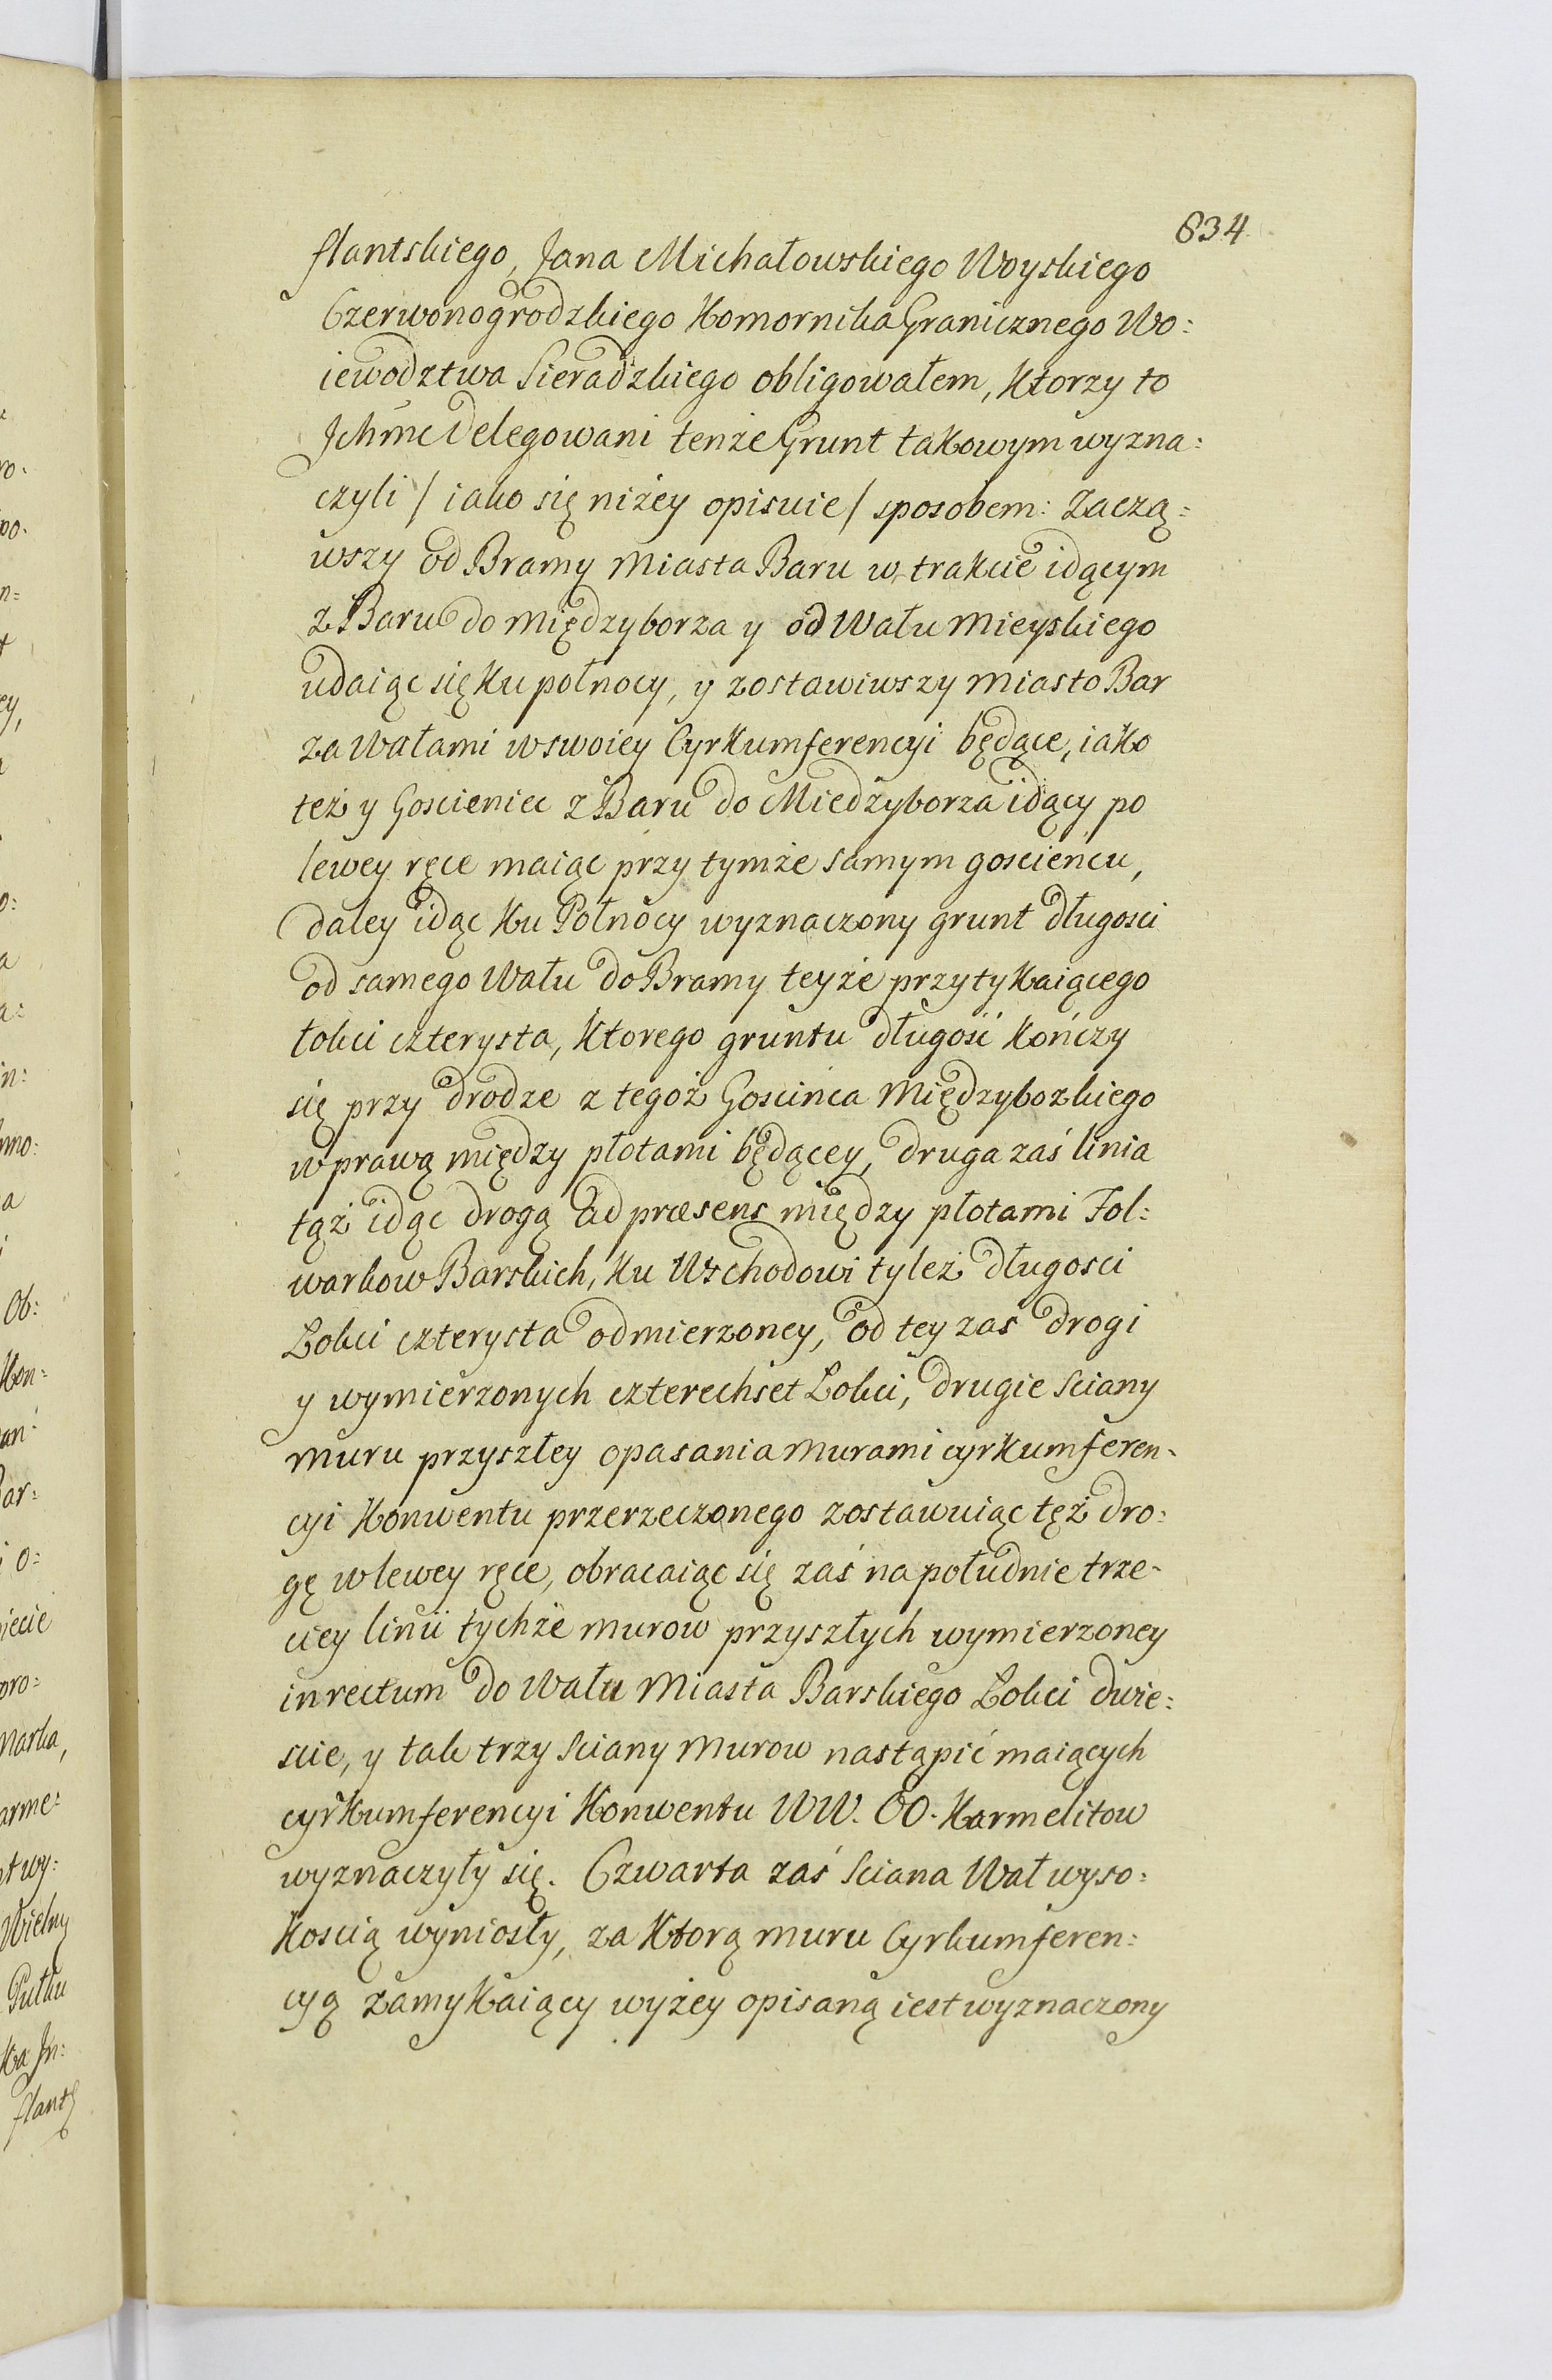 634
flantskiego, Jana Michałowskiego Woyskiego
Czerwonogrodzkiego Komornika Granicznego Wo:
iewodztwa Sieradzkiego obligowałem, Ktorzy to
Jchmć Delegowani tenże Grunt takowym wyzna:
czyli / iako się niżey opisuie / sposobem: Zaczą:
wszy od Bramy Miasta Baru w trakcie idącym
z Baru do Międzyborza y od Wału Mieyskiego
udaiąc się Ku połnocy, y zostawiwszy Miasto Bar
za Wałami w swoiey Cyrkumferencyi będące, iako
też y Goscieniec z Baru do Miedzyborza idący po
lewey ręce maiąc przy tymże samym goscieńcu,
daley idąc Ku Połnocy wyznaczony grunt długosci
od samego Wału do Bramy teyże przytykaiącego
łokci czterysta, Ktorego gruntu długość Kończy
się przy drodze z tegoż Goscińca Międzybozkiego
w prawą między płotami będącey, druga zaś linia
tąż idąc drogą ad præsens między płotami Fol:
warkow Barskich, Ku Wschodowi tyleż długosci
Łokci czterysta odmierzoney, od tey zaś drogi
y wymierzonych czterechset Łokci, drugie Sciany
muru przyszłey opasania Murami cyrkumferen-
cyi Konwentu przerzeczonego zostawuiąc też dro:
gę w lewey ręce, obracaiąc się zaś na południe trze-
ciey linii tychże Murow przyszłych wymierzoney
in rectum do Wału Miasta Barskiego Łokci dwie:
scie, y tak trzy Sciany Murow nastąpić maiących
cyrkumferencyi Konwentu WW. OO. Karmelitow
wyznaczyły się. Czwarta zaś Sciana Wał wyso:
Koscią wyniosły, za Ktorą muru Cyrkumferen:
cyą zamykaiący wyżey opisaną iest wyznaczony